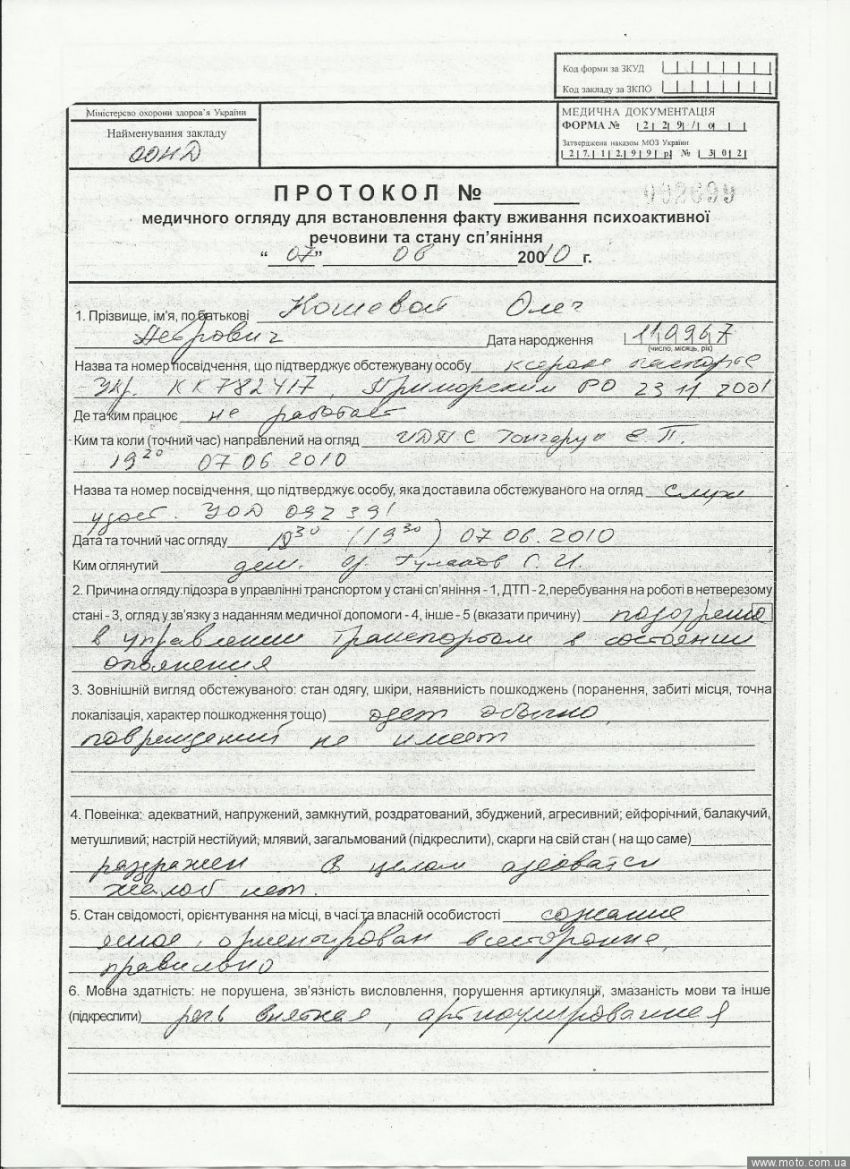 Код форми за ЗКУД
Код закладу за ЗКПО
Міністерство охорони здоров'я України
Найменування закладу
ООНД
МЕДИЧНА ДОКУМЕНТАЦІЯ
ФОРМА № 229/о
Затверджена наказом МОЗ України
27.12.99 р. № 302
ПРОТОКОЛ № 002699
медичного огляду для встановлення факту вживання психоактивної
речовини та стану сп'яніння
“ 07 ” 06 20010 г.
1. Прізвище, ім'я, по батькові Кошевой Олег
Петрович Дата народження 110967
(число, місяць, рік)
Назва та номер посвідчення, що підтверджує обстежувану особу ксерокс паспорта
Укр. КК 782417, Приморским РО 23 11 2001
Де та ким працює не работает
Ким та коли (точний час) направлений на огляд ИДПС Гончарук Е.П.
19 20 07 06 2010
Назва та номер посвідчення, що підтверджує особу, яка доставила обстежуваного на огляд служ
удост. УОД 092391
Дата та точний час огляду 30 (19 30) 07 06. 2010
Ким оглянутий деж. С. И.
2. Причина огляду: підозра в управлінні транспортом у стані сп'яніння - 1, ДТП - 2, перебування на роботі в нетверезому
стані - 3, огляд у зв'язку з наданням медичної допомоги - 4, інше - 5 (вказати причину) подозрение
в управлении транспортом в состоянии
опьянения
3. Зовнішній вигляд обстежуваного: стан одягу, шкіри, наявнисть пошкоджень (поранення, забиті місця, точна
локалізація, характер пошкодження тощо) одет обычно,
повреждений не имеет
4. Повеінка: адекватний, напружений, замкнутий, роздратований, збуджений, агресивний; ейфорічний, балакучий,
метушливий; настрій нестійуий, млявий, загальмований (підкреслити), скарги на свій стан ( на що саме)
раздражен в целом адекватен
жалоб нет.
5. Стан свідомості, орієнтування на місці, в часі та власній особистості сознание
ясное, ориентирован всесторонне,
правильно
6. Мовна здатність: не порушена, зв'язність висловлення, порушення артикуляції, змазаність мови та інше
(підкреслити) речь внятная, артикулированная
www.moto.com.ua